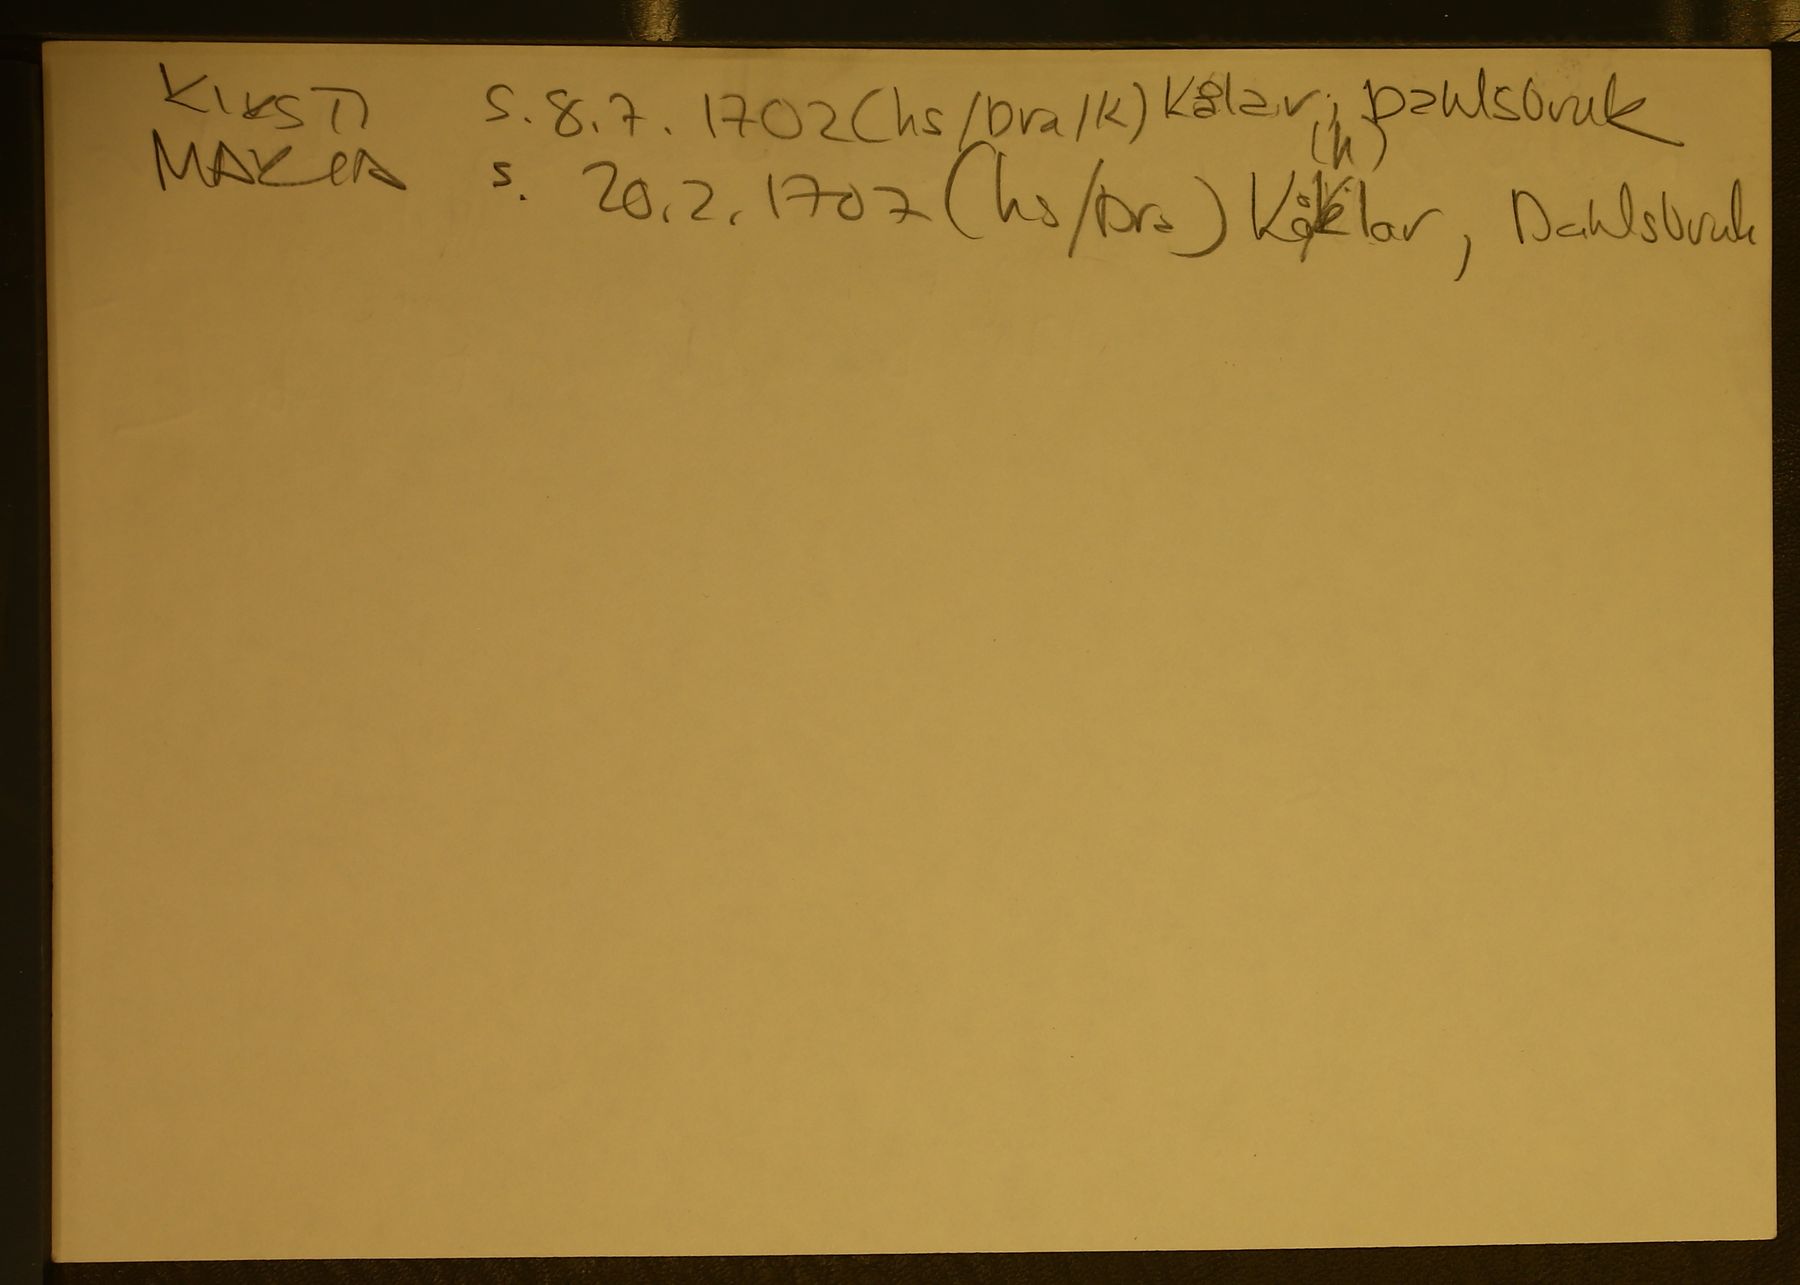 KIRSTI s. 8.7. 1702 (hs/Dra/k) Kålar, Dahlsbruk
(h)
MARIA s. 20.2. 1707 (hs/Dra) Dahlsbruk